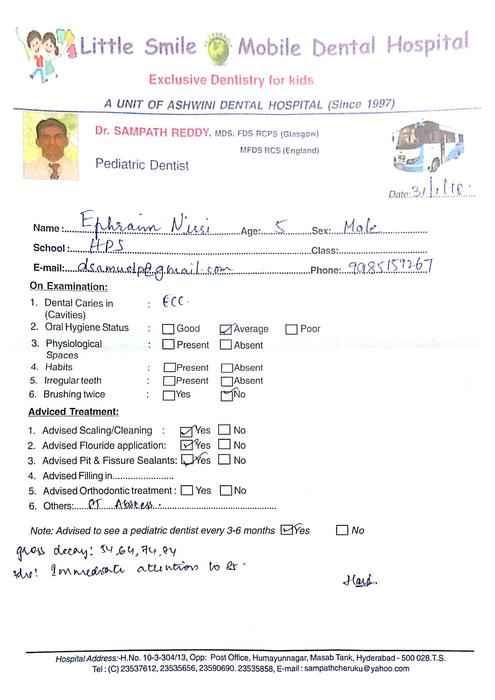 Little Smile Mobile Dental Hospital
Exclusive Dentistry for kids
A UNIT OF ASHWINI DENTAL HOSPITAL (Since 1997)
Dr. SAMPATH REDDY, MDS, FDS RCPS (Glasgow)
MFDS RCS (England)
Pediatric Dentist
Date: 31/1/18
Name: Ephraim Age: 5 Sex: Male
School: HPS Class:
E-mail: dsamuelp@gmail.com Phone: 9985157267
On Examination:
1. Dental Caries in : ECC
(Cavities)
2. Oral Hygiene Status : Good Average Poor
3. Physiological : Present Absent
Spaces
4. Habits : Present Absent
5. Irregular teeth : Present Absent
6. Brushing twice : Yes No
Adviced Treatment:
1. Advised Scaling/Cleaning : Yes No
2. Advised Flouride application: Yes No
3. Advised Pit & Fissure Sealants: Yes No
4. Advised Filling in
5. Advised Orthodontic treatment : Yes No
6. Others:
Note: Advised to see a pediatric dentist every 3-6 months Yes No
gross decay: 54, 64, 74, 84
Adv: Immediate attention to
Hospital Address:-H.No. 10-3-304/13, Opp: Post Office, Humayunnagar, Masab Tank, Hyderabad - 500 028.T.S.
Tel : (C) 23537612, 23535656, 23590690. 23535858, E-mail : sampathcheruku@yahoo.com